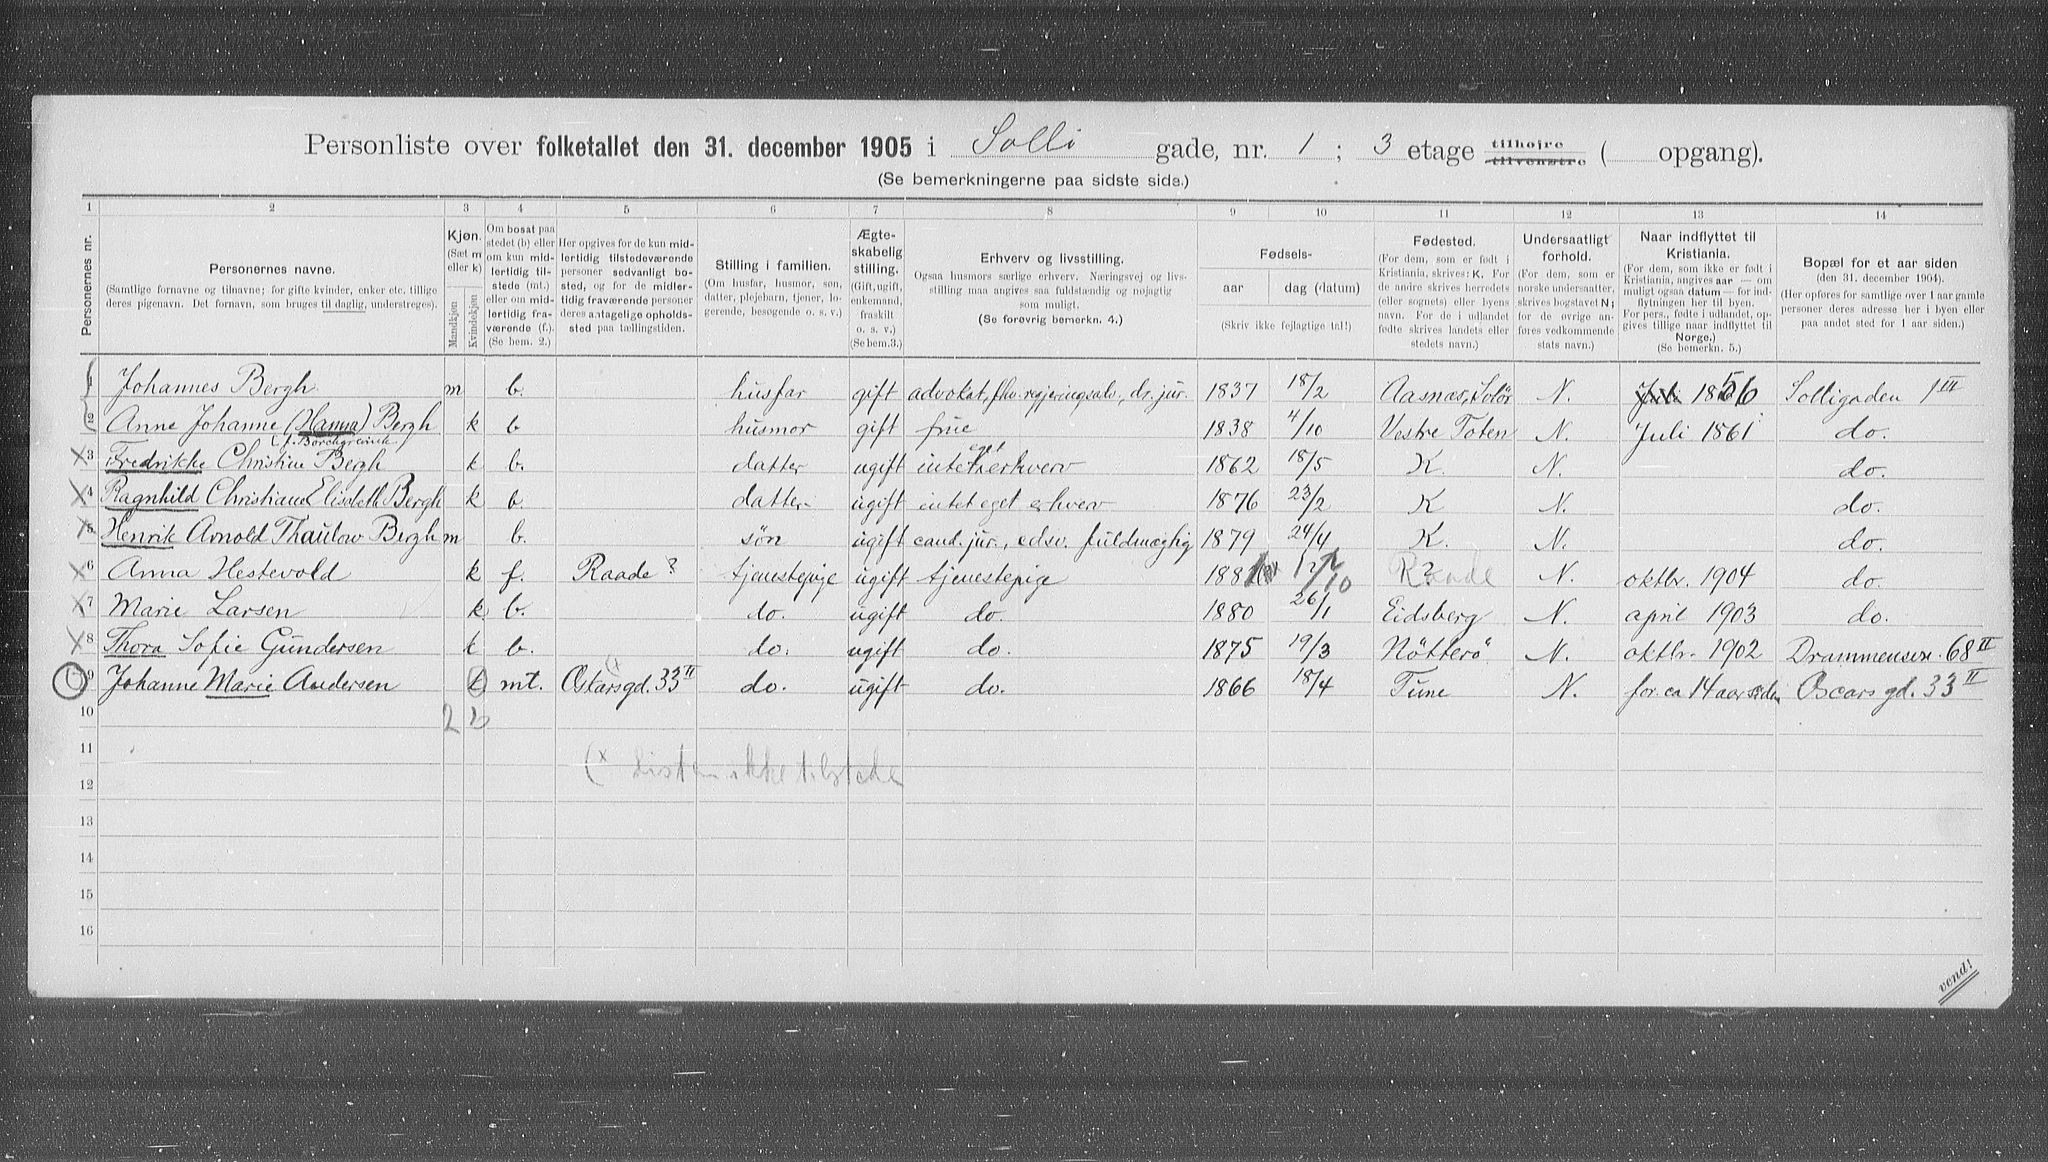 Personliste over folketallet den 31. december 1905 i Solli gade, nr. 1 ; 3 etage tilhøjre tilvenstre ( opgang).
(Se bemerkningerne paa sidste side.)
1 2 3 4 5 6 7 8 9 10 11 12 13 14
Personernes nr.
Personernes navne.
(Samtlige fornavne og tilnavne; for gifte kvinder, enker etc. tillige
deres pigenavn. Det fornavn, som bruges til daglig, understreges).
Kjøn.
(Sæt m
eller k)
Mandkjøn
Kvindekjøn
Om bosat paa
stedet (b) eller
om kun mid-
lertidig til-
stede (mt.)
eller om mid-
lertidig fra-
værende (f.).
(Se bem. 2.)
Her opgives for de kun mid-
lertidig tilstedeværende
personer sedvanligt bo-
sted, og for de midler-
tidig fraværende personer
deres antagelige opholds-
sted paa tællingstiden.
Stilling i familien.
(Om husfar, husmor, søn,
datter, plejebarn, tjener, lo-
gerende, besøgende o. s. v.)
Ægte-
skabelig
stilling.
(Gift, ugift,
enkemand,
fraskilt
o. s. v.)
(Se bem.3.)
Erhverv og livsstilling.
Ogsaa husmors særlige erhverv. Næringsvej og livs-
stilling maa angives saa fuldstændig og nøjagtig
som muligt.
(Se forøvrig bemerkn. 4.)
Fødsels-
aar dag (datum)
(Skriv ikke fejlagtige tal!)
Fødested.
(For dem, som er født i
Kristiania, skrives: K. For
de andre skrives herredets
(eller sognets) eller byens
navn. For de i udlandet
fødte skrives landets eller
stedets navn.)
Undersaatligt
forhold.
(For dem, som er
norske undersaatter,
skrives bogstavet N;
for de øvrige an-
føres vedkommende
stats navn.)
Naar indflyttet til
Kristiania.
(For dem, som ikke er født i
Kristiania, angives aar — om
muligt ogsaa datum — for ind-
flytningen her til byen.
For pers., fødte i udlandet, op-
gives tillige naar indflyttet til
Norge.)
(Se bemerkn. 5.)
Bopæl for et aar siden
(den 31. december 1904).
(Her opføres for samtlige over 1 aar gamle
personer deres adresse her i byen eller
paa andet sted for 1 aar siden.)
1 Johannes Bergh m b. husfar gift advokat, fhv. regjeringsadv., ds. jur. 1837 18/2 Aasnes, Solør N. 1856 Solligaden 1 III
2 Anne Johanne (Hanna) Bergh k b husmor gift frue 1838 4/10 Vestre Toten N. Juli 1861 do.
f. Borchgrevink
3 Fredrikke Christine Bergh k b. datter ugift intet eget erhverv 1862 18/5 K N. do.
4 Ragnhild Christiane Elisabeth Bergh k b. datter ugift intet eget erhverv 1876 23/2 K N. do.
5 Henrik Arnold Thaulow Bergh m b. søn ugift cand. jur., edsv. fuldmægtig 1879 24/4 K. N. do.
6 Anna Hestevold k f. Raade? tjenestepige ugift tjenestepige 188 /10 Raade N. oktbr. 1904 do.
7 Marie Larsen k b. do. ugift do. 1880 26/1 Eidsberg N. april 1903 do.
8 Thora Sofie Gundersen k b. do. ugift do. 1875 19/3 Nøtterø N. oktbr. 1902 Drammensvn. 68 II
9 Johanne Marie Andersen k mt. Oscarsgd. 33 II do. ugift do. 1866 18/4 Tune N. for ca 14 aar siden Oscars gd. 33 II
10 2 6
11
(x Listen ikke tilstede
12
13
14
15
16
vend!